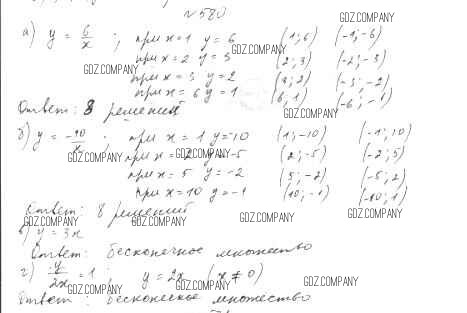 №580
GDZ.COMPANY
а) y = 6/x ; при x=1 y=6 (1;6) (-1;-6)
GDZ.COMPANY
при x=2 y=3 (2;3) (-2;-3)
GDZ.COMPANY
при x=3 y=2 (3;2) (-3;-2)
при x=6 y=1 (6;1) (-6;-1)
Ответ: 8 решений
GDZ.COMPANY
б) y = -10/x ; при x=1 y=10 (1;-10) (-1;10)
GDZ.COMPANY GDZ.COMPANY
при x=2 y=-5 (2;-5) (-2;5)
GDZ.COMPANY
при x=5 y=-2 (5;-2) (-5;2)
при x=10 y=-1 (10;-1) (-10;1)
Ответ: 8 решений
GDZ.COMPANY GDZ.COMPANY GDZ.COMPANY GDZ.COMPANY
в) y=3x
Ответ: бесконечное множество
г) y/2x = 1 ; y=2x (x≠0)
GDZ.COMPANY GDZ.COMPANY GDZ.COMPANY
Ответ: бесконечное множество